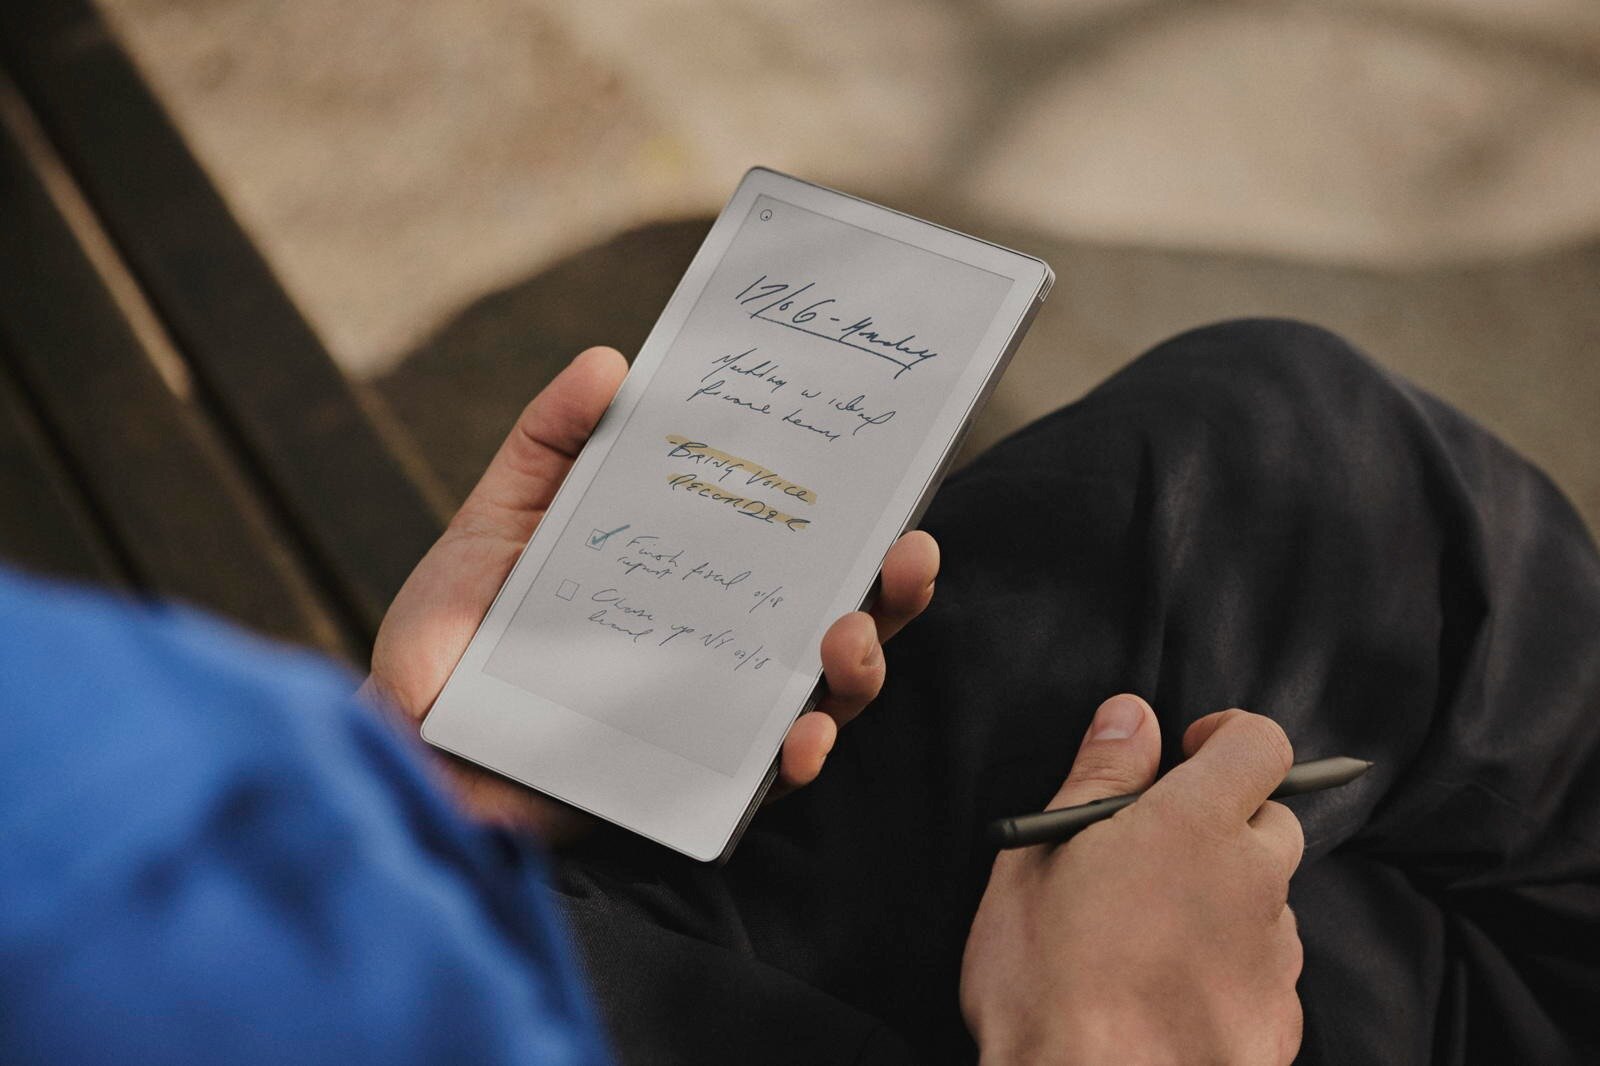 17/06 - Monday
Meeting w
finance team
- BRING VOICE
RECORDER
Finish fiscal 01/18
report
Close up NY 02/18